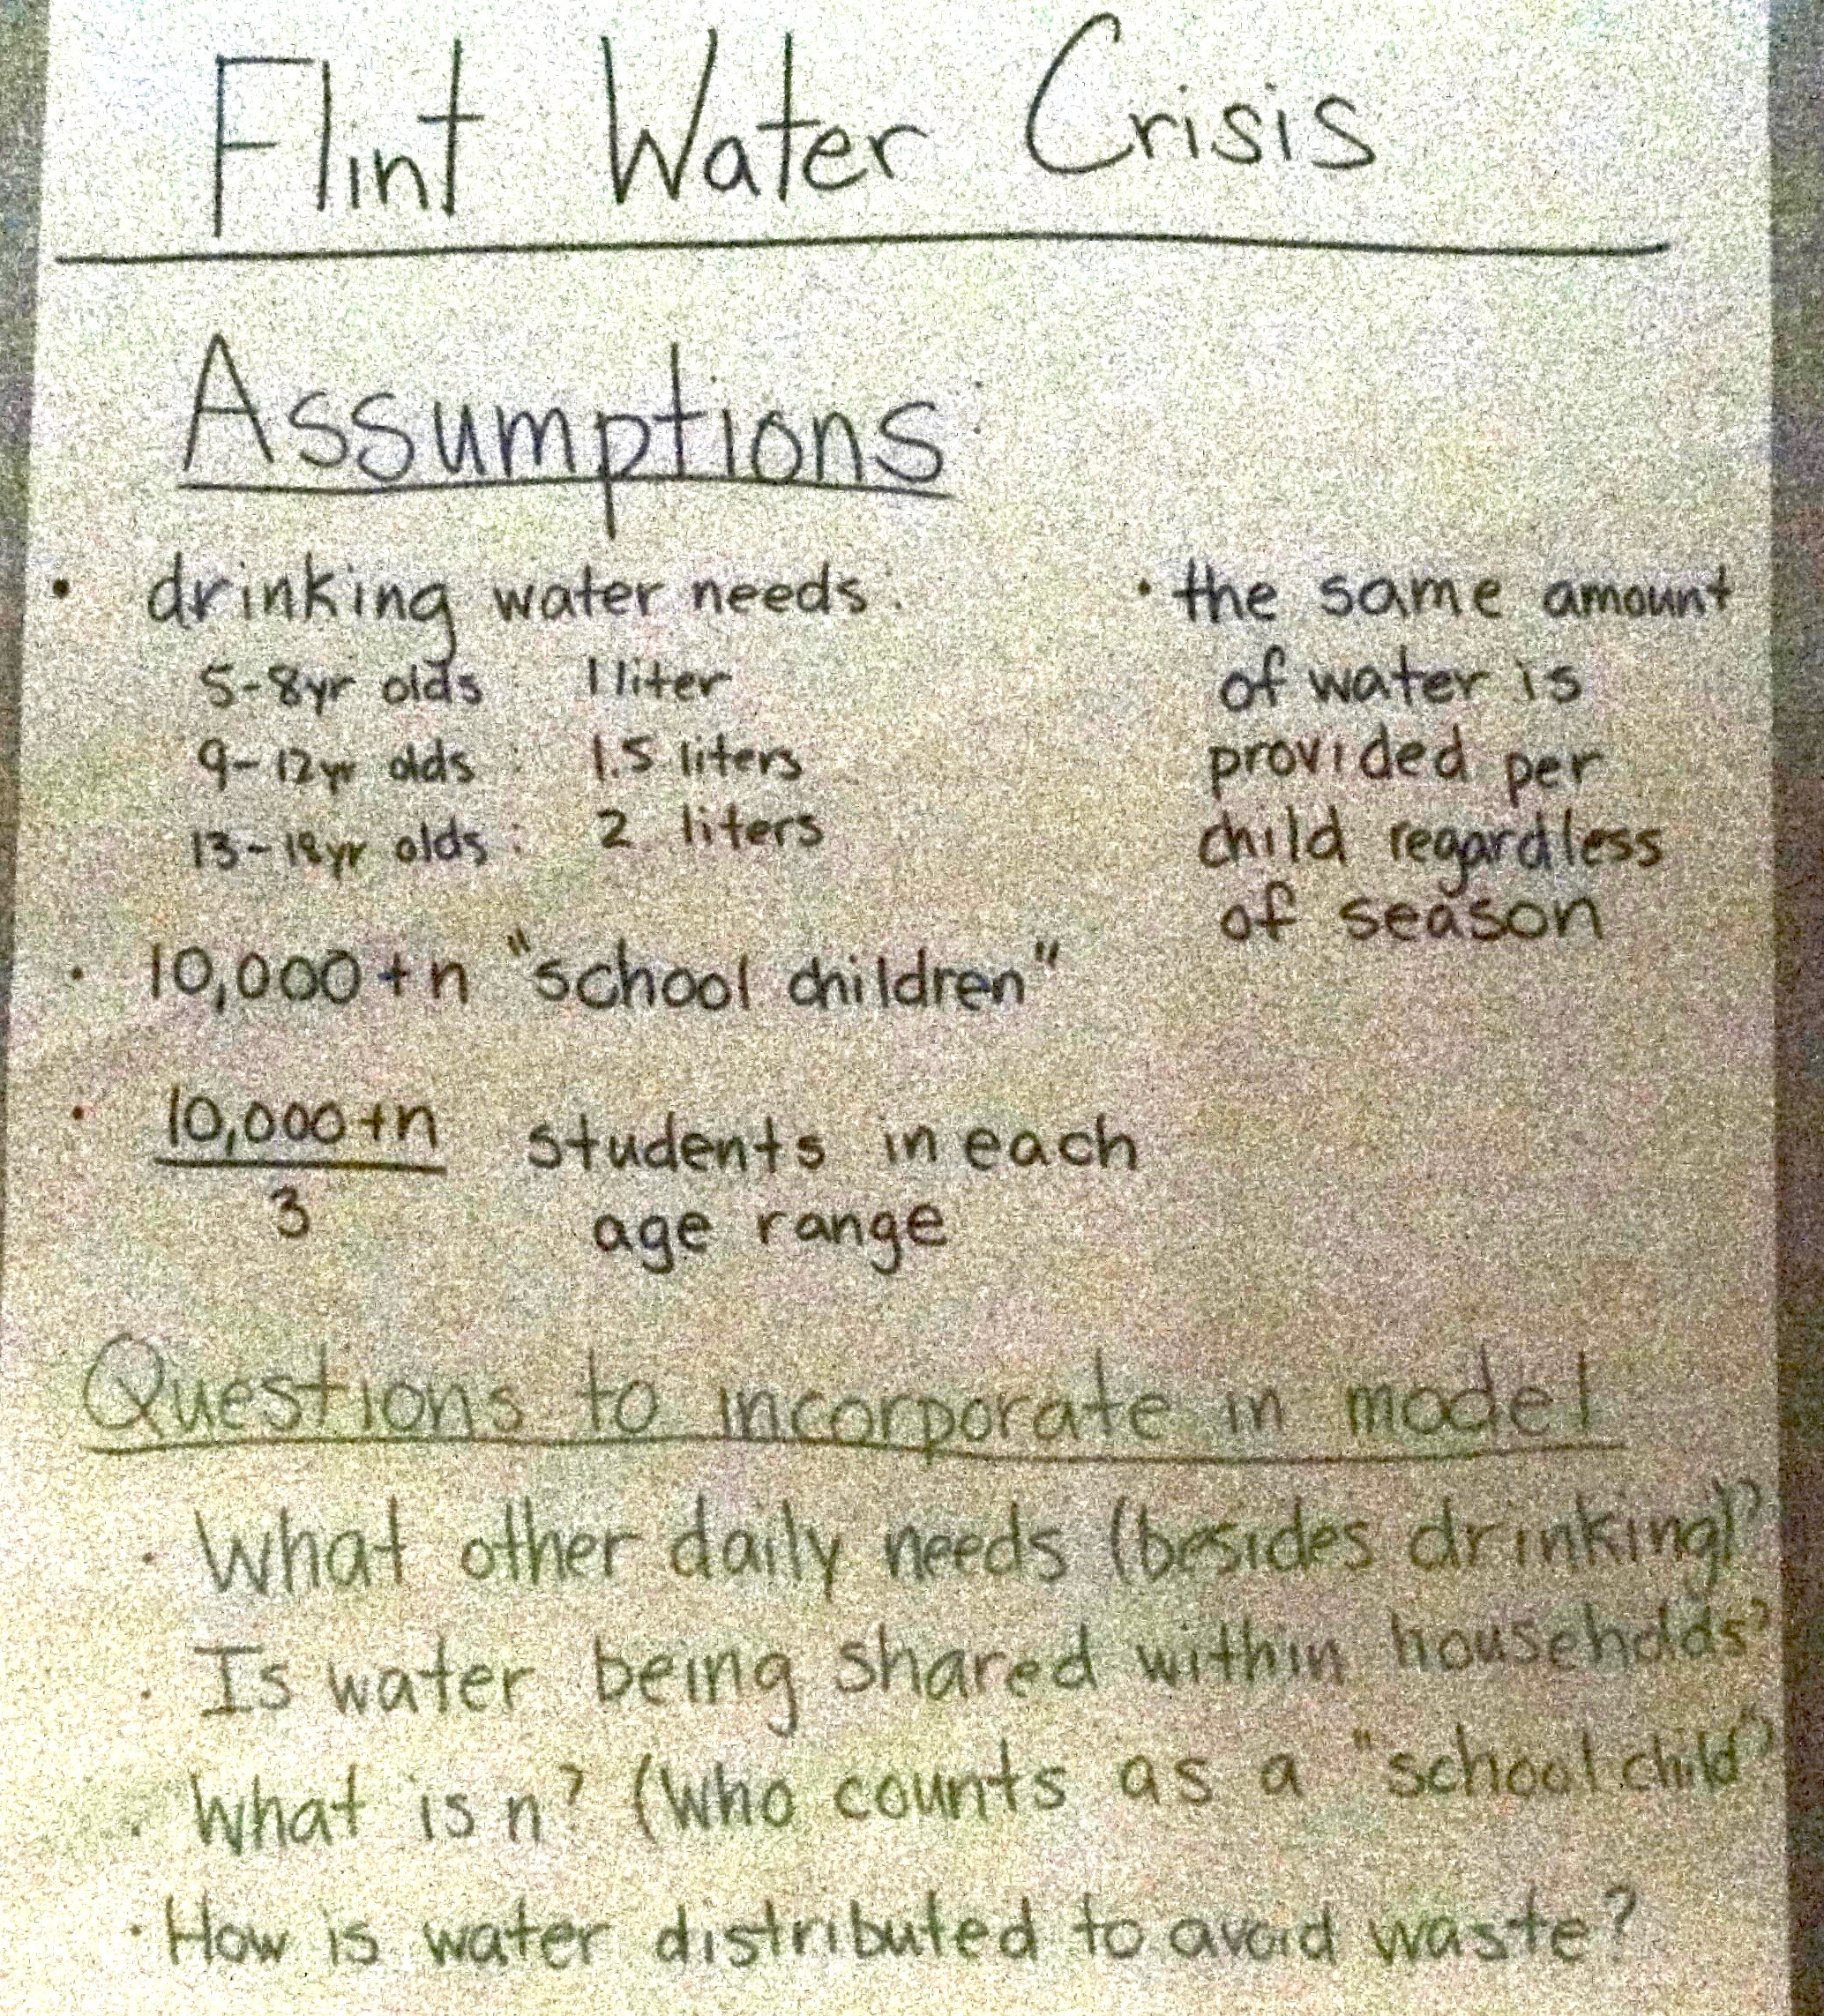 Flint Water Crisis
Assumptions:
• drinking water needs:
5-8yr olds : 1 liter
9-12yr olds : 1.5 liters
13-18yr olds : 2 liters
• 10,000+n "school children"
• 10,000+n
3
students in each
age range
• the same amount
of water is
provided per
child regardless
of season
Questions to incorporate in model
• What other daily needs (besides drinking)?
• Is water being shared within households?
• What is n? (Who counts as a "school child"?
• How is water distributed to avoid waste?